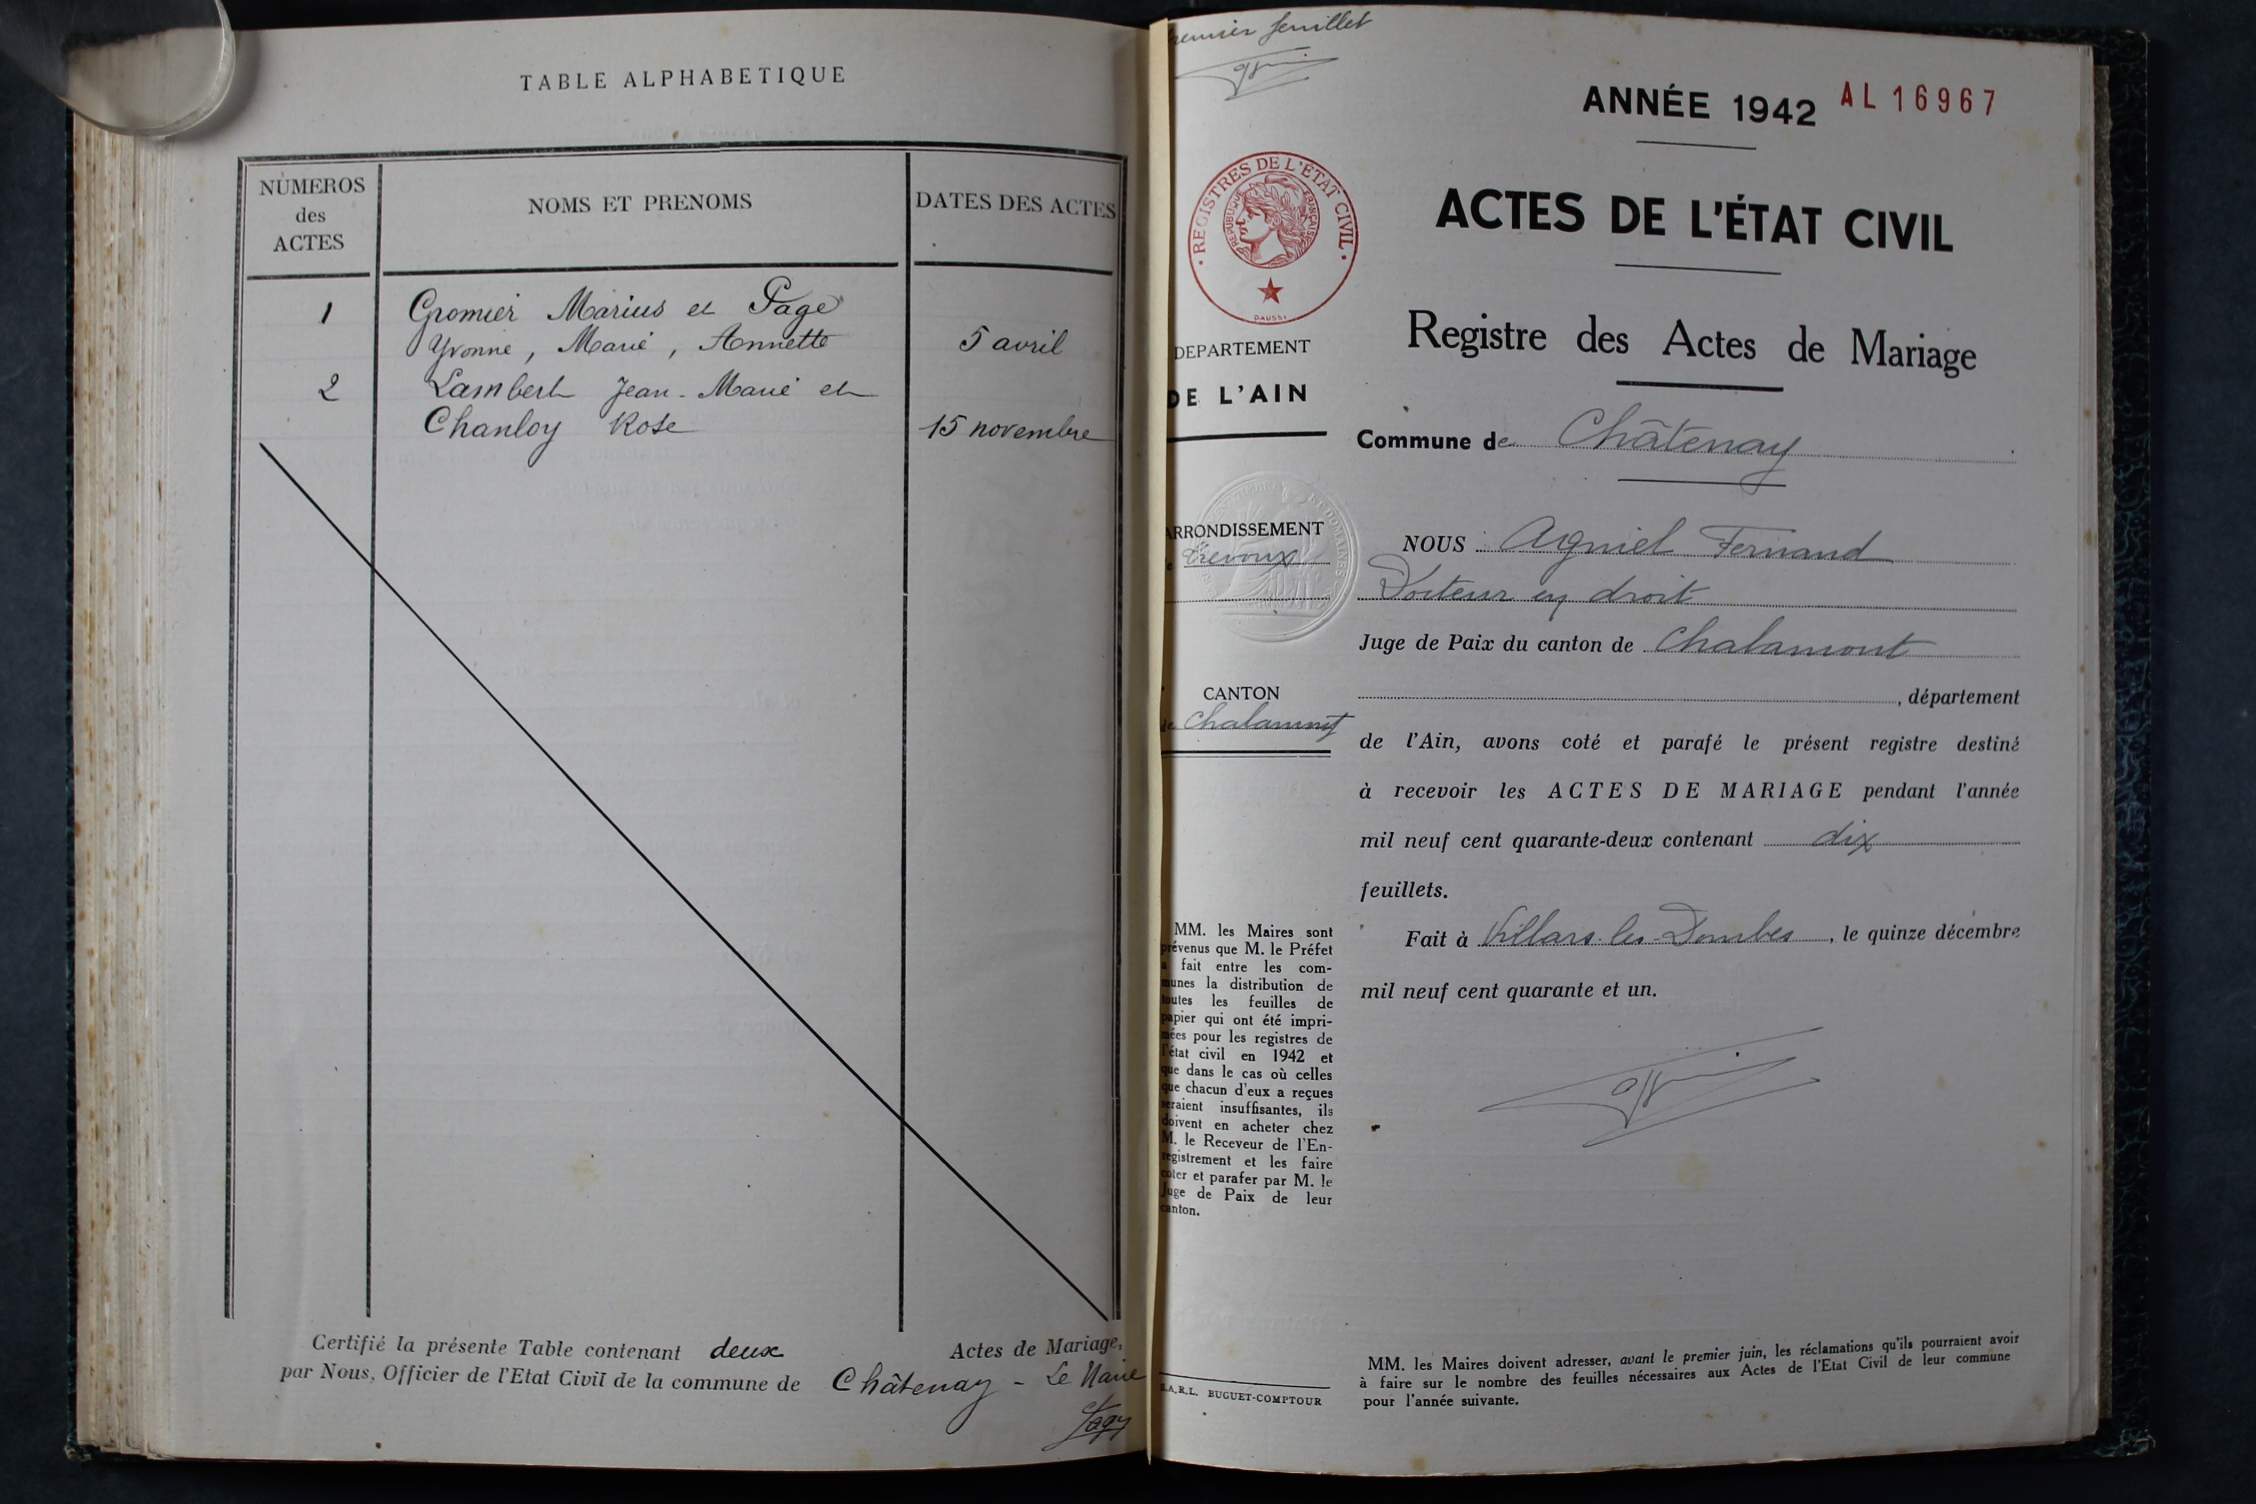 TABLE ALPHABETIQUE
NUMEROS
des
ACTES
NOMS ET PRENOMS
DATES DES ACTES
1
Gromier Marius et Page
Yvonne, Marie, Annette
5 avril
2
Lambert Jean-Marie et
Chanloy Rose
15 novembre
Certifié la présente Table contenant deux Actes de Mariage,
par Nous, Officier de l'Etat Civil de la commune de Châtenay - Le Maire
premier feuillet
ANNÉE 1942 AL 16967
REGISTRES DE L'ÉTAT CIVIL
REPUBLIQUE FRANÇAISE
DAUSSI
ACTES DE L'ÉTAT CIVIL
Registre des Actes de Mariage
DEPARTEMENT
DE L'AIN
Commune de Châtenay
ARRONDISSEMENT
de Trévoux
NOUS Agniel Fernand
Docteur en droit
Juge de Paix du canton de Chalamont
CANTON
de Chalamont
, département
de l'Ain, avons coté et parafé le présent registre destiné
à recevoir les ACTES DE MARIAGE pendant l'année
mil neuf cent quarante-deux contenant dix
feuillets.
Fait à Villars-les-Dombes, le quinze décembre
mil neuf cent quarante et un.
MM. les Maires sont
prévenus que M. le Préfet
a fait entre les com-
munes la distribution de
toutes les feuilles de
papier qui ont été impri-
mées pour les registres de
l'état civil en 1942 et
que dans le cas où celles
que chacun d'eux a reçues
seraient insuffisantes, ils
doivent en acheter chez
M. le Receveur de l'En-
registrement et les faire
coter et parafer par M. le
Juge de Paix de leur
canton.
S.A.R.L. BUGUET-COMPTOUR
MM. les Maires doivent adresser, avant le premier juin, les réclamations qu'ils pourraient avoir
à faire sur le nombre des feuilles nécessaires aux Actes de l'Etat Civil de leur commune
pour l'année suivante.